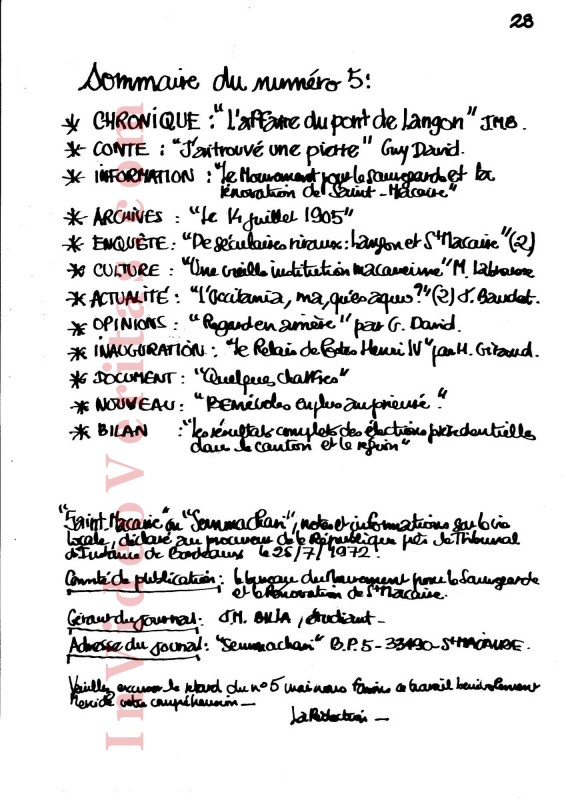 28
Sommaire du numéro 5:
* CHRONIQUE : "L'affaire du pont de Langon" JMB.
* CONTE : "J'ai trouvé une pierre" Guy David.
* INFORMATION : "Le Mouvement pour la Sauvegarde et la
rénovation de Saint-Macaire"
* ARCHIVES : "Le 14 juillet 1905"
* ENQUÊTE : "De séculaires rivaux : Langon et St Macaire" (2)
* CULTURE : "Une vieille institution macarienne" M.
* ACTUALITÉ : "L'Occitania, ma, qu'es aquo ?" (2) J. Baudet.
* OPINIONS : "Regard en arrière" par G. David.
* INAUGURATION : "Le Relais de Postes Henri IV" par H. Giraud.
* DOCUMENT : "Quelques chiffres"
* NOUVEAU : "Bénévoles en plus au prieuré."
* BILAN : "Les résultats complets des élections présidentielles
dans le canton et la région"
"Saint Macaire" ou "Semmachari", notes et informations sur la vie
locale, déclaré au procureur de la République près le Tribunal
d'Instance de Bordeaux le 25/7/1972.
Comité de publication : le bureau du Mouvement pour la Sauvegarde
et la Rénovation de St Macaire.
Gérant du journal : J.M. BILLA, étudiant -
Adresse du journal : "Semmachari" B.P.5 - 33490 - St MACAIRE.
Veuillez excuser le retard du n°5 mais nous faisons ce travail bénévolement
Merci de votre compréhension -
La Rédaction -
InvidioVeritas.com